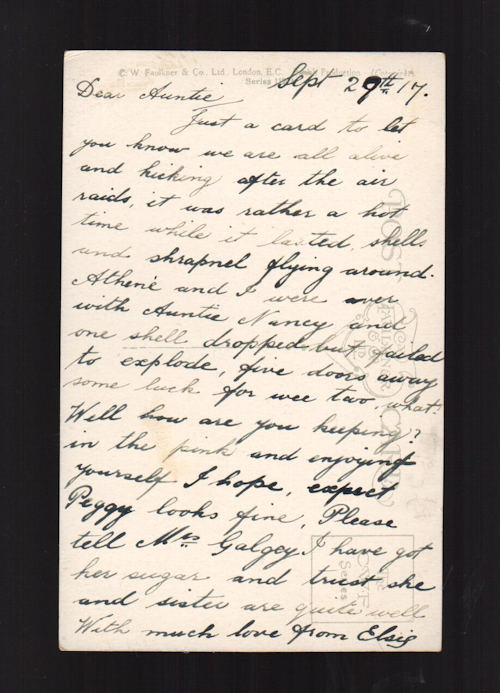 C. W. Faulkner & Co., Ltd., London, E.C. Production.
Series
Sept 29th /17.
Dear Auntie
Just a card to let
you know we are all alive
and kicking after the air
raids, it was rather a hot
time while it lasted, shells
and shrapnel flying around.
Athene and I were over
with Auntie Nancy and
one shell dropped but failed
to explode, five doors away
some luck for wee two, what?
Well how are you keeping?
in the pink and enjoying
yourself I hope, expect
Peggy looks fine, Please
tell Mrs Galgey I have got
her sugar and trust she
and sister are quite well
With much love from Elsie
POST
FAULKNER
CARD
THE
Series